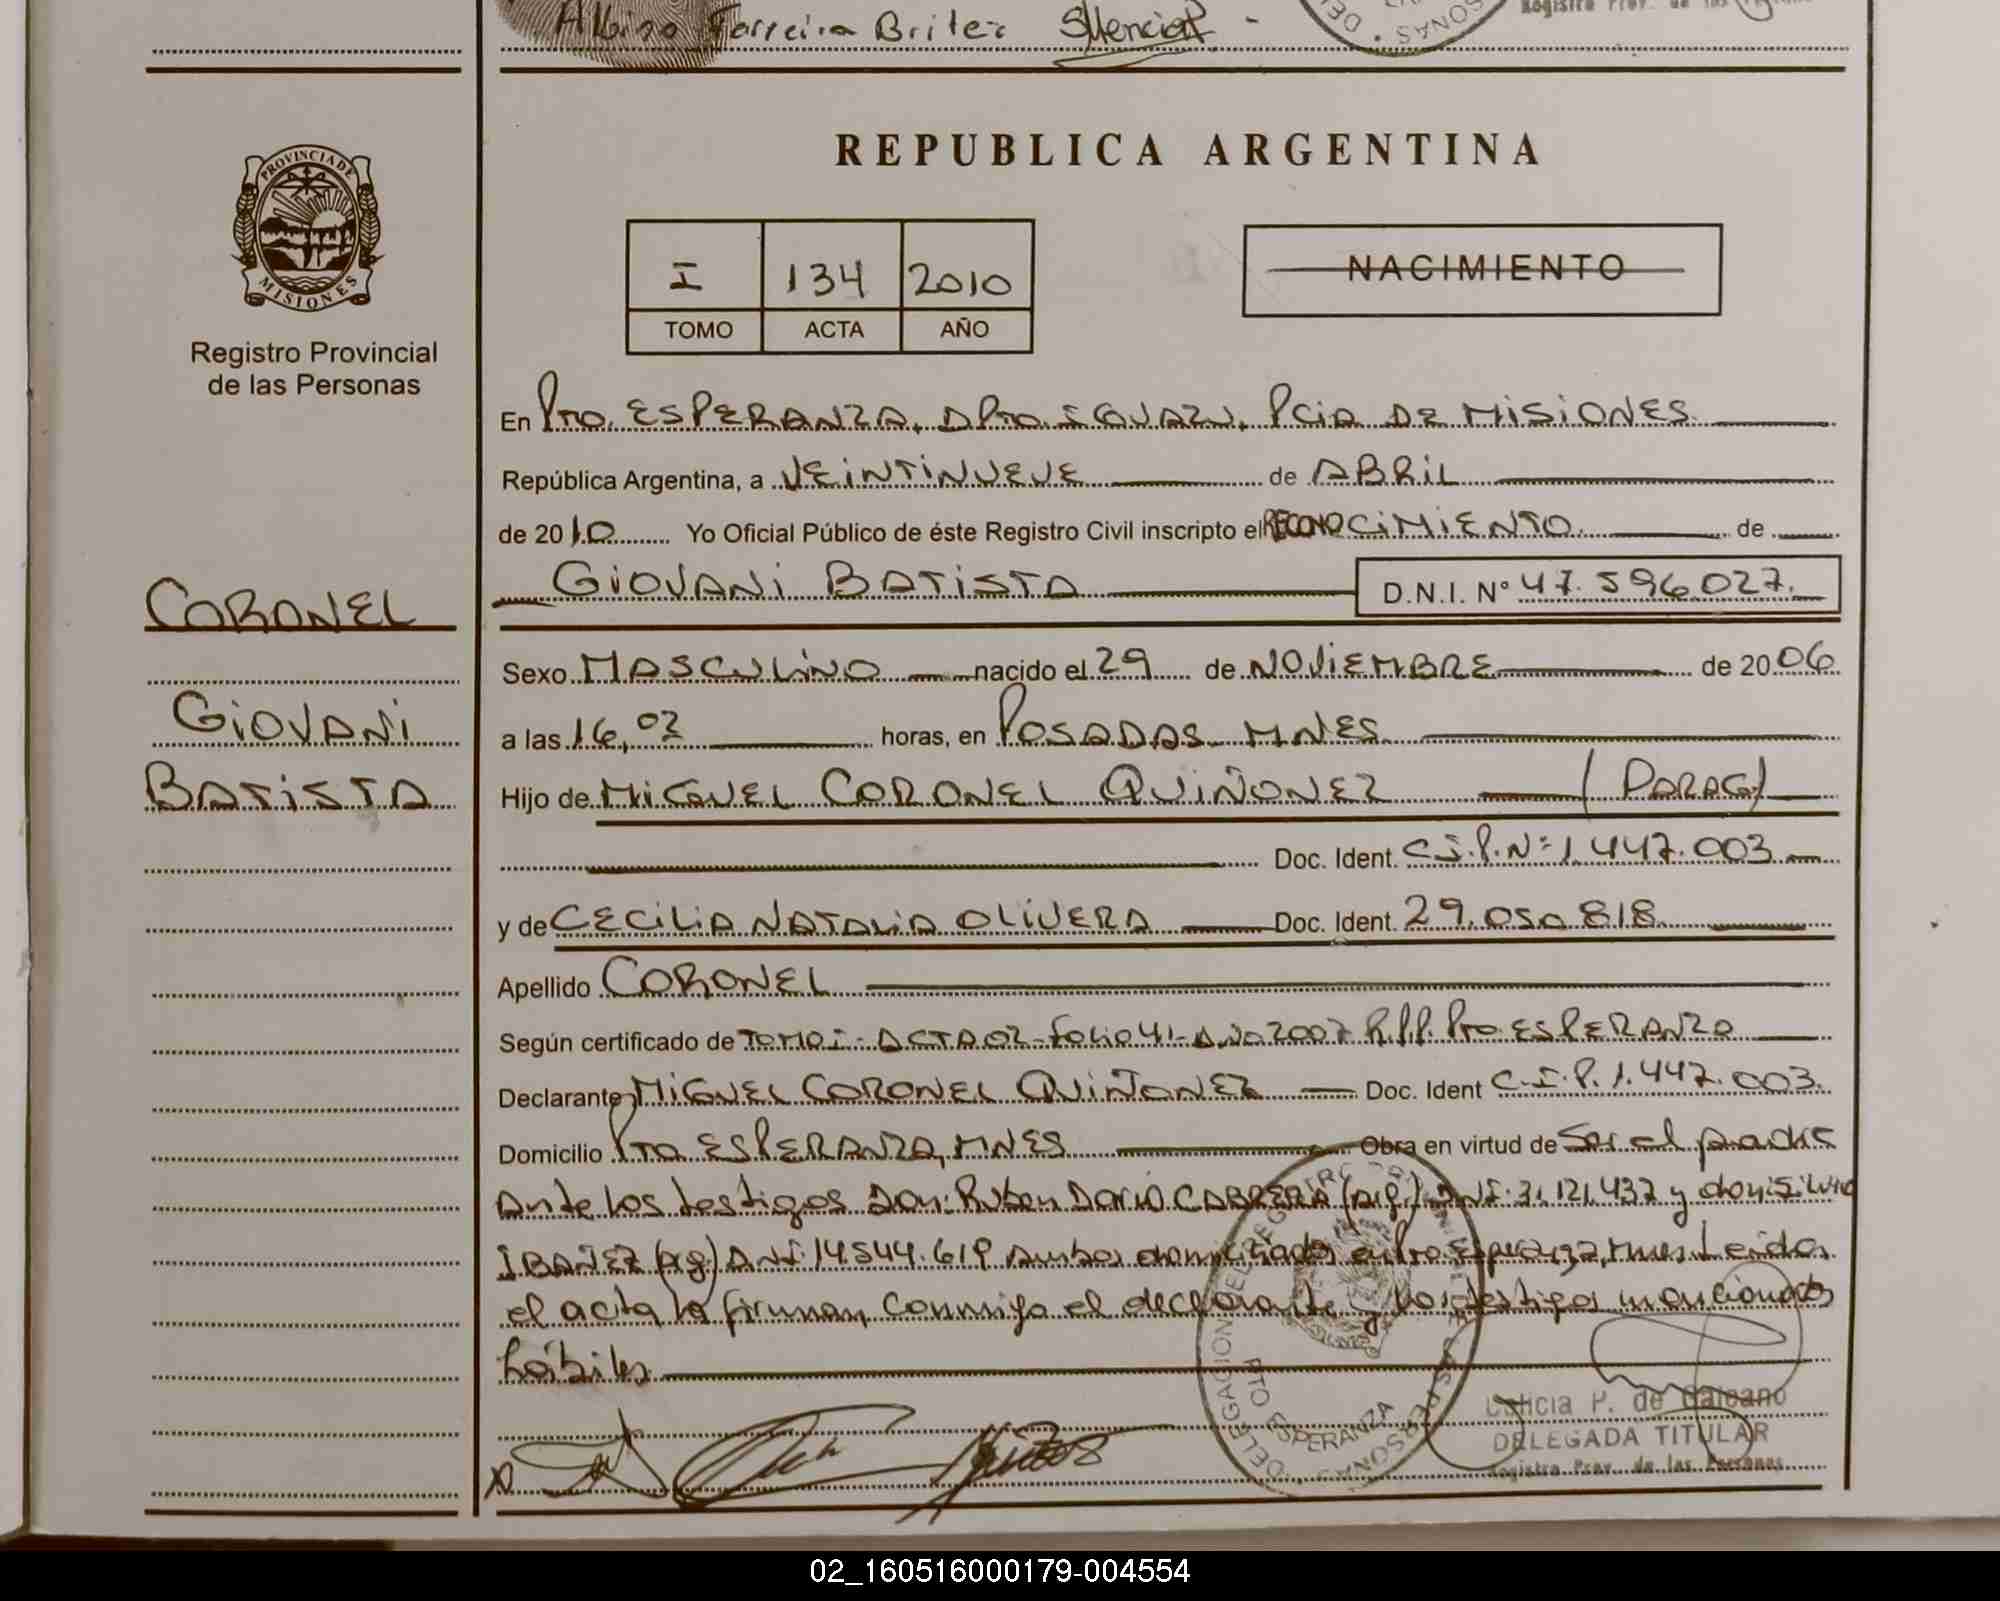 Albino Ferreira Britez
REPUBLICA ARGENTINA
PROVINCIA DE
MISIONES
Registro Provincial
de las Personas
I 134 2010
TOMO ACTA AÑO
NACIMIENTO
En Pto. ESPERANZA, DPto. IGUAZU, PCiA DE MiSiONES
República Argentina, a VEiNTiNUEVE de ABRiL
de 2010 Yo Oficial Público de éste Registro Civil inscripto el RECONOCiMiENTO de
GiOVANi BATiSTA D.N.I. Nº 47.596.027.
CORONEL
GiOVANi
BATiSTA
Sexo MASCULiNO nacido el 29 de NOViEMBRE de 2006
a las 16,02 horas, en POSADAS MNES
Hijo de MiGUEL CORONEL QUiÑONEZ (PARAG)
Doc. Ident. C.I.P. Nº 1.447.003
y de CECiLiA NATALiA OLiVERA Doc. Ident. 29.050.818
Apellido CORONEL
Según certificado de TOMO I - ACTA 02 - Folio 41 - Año 2007 R.P.P. Pto. ESPERANZA
Declarante MiGUEL CORONEL QUiÑONEZ Doc. Ident C.I.P. 1.447.003.
Domicilio Pto ESPERANZA, MNES Obra en virtud de Ser el padre
Ante los testigos Don: Ruben Dario CABRERA (Arg.) DNI: 31.121.437 y don Silvio
IBAÑEZ (Arg) DNI: 14.544.619 Ambos domiciliados en Pto. Esperanza, Mnes. Leida
el acta la firman conmigo el declarante y los testigos mencionados
hábiles
DELEGACION
PTO ESPERANZA
P. de Galeano
DELEGADA TITULAR
Registro Prov. de las Personas
02_160516000179-004554